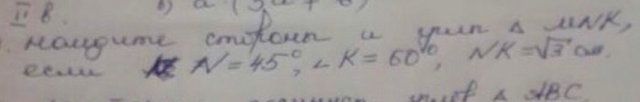 II в. в) a (3a + b)
найдите стороны и углы Δ MNK,
если N = 45°, ∠K = 60°, NK = √3 см.
углов Δ ABC